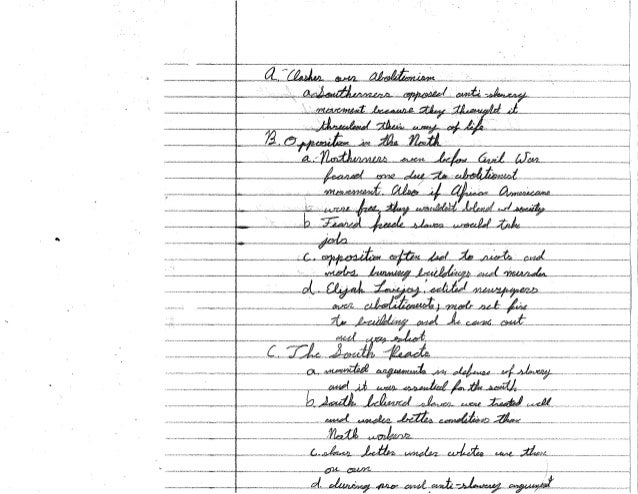 A - Clashes over abolitionism
a. Southerners opposed anti-slavery
movement because they thought it
threatened their way of life
B. Opposition in the North
a. Northerners even before Civil War
feared one due to abolitionist
movement. Also if African Americans
were free, they wouldn't blend w/ society
b. Feared freede slaves would take
jobs
c. opposition often led to riots and
mobs burning buildings and murder
d. Elijah Lovejoy: edited newspapers
over abolitionists; mob set fire
to building and he came out
and was shot
C. The South Reacts
a. mounted arguments in defense of slavery
and it was essential for the south.
b. South believed slaves were treated well
and under better conditions than
North workers
c. slaves better under whites care than
on own
d. during pro and anti-slavery argument